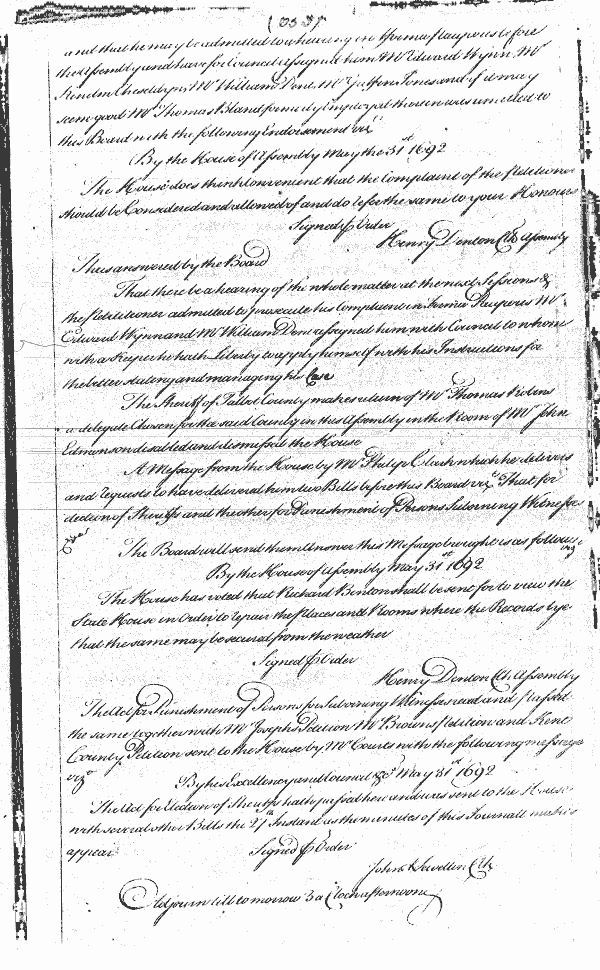 and that he may be admitted to a hearing in forma pauperis before
the Assembly and have for Council assigned him Mr Edward Wynn Mr
Kenelm Cheseldyn, Mr William Dent, Mr Griffith Jones and if it may
seem good Mr Thomas Bland formerly Employed therein was remitted to
this Board with the following Endorsement vizt
By the House of Assembly May the 31st 1692
The House does think convenient that the Complaint of the Petitioner
should be Considered and allowed of and do refer the same to your Honours
Signed p Order
Henry Denton Clk Assembly
Thus answered by the Board
That there be a hearing of the whole matter at the next Sessions &
the Petitioner admitted to prosecute his Complaint in Forma Pauperis Mr
Edward Wynn and Mr William Dent assigned him with Council to whom
with a Keeper he hath Liberty to apply himself with his Instructions for
the better stateing and managing his Case
The Sheriff of Talbot County makes return of Mr Thomas Robins
a delegate Chosen for the said County in this Assembly in the Room of Mr John
Edmunson disabled and dismissed the House
A Message from the House by Mr Philip Clark which he delivers
and requests to have delivered him two Bills before this Board vizt That for
election of Sheriffs and the other for Punishment of Persons Suborning Witnesses
The Board will send them Answer this Message brought is as follows
vizt
By the House of Assembly May 31st 1692
The House has voted that Richard Benton shall be sent for to view the
State House in Order to repair the Places and Rooms where the Records lye
that the same may be secured from the weather
Signed p Order
Henry Denton Clk Assembly
The Act for Punishment of Persons for Suborning Witnesses read and passed
the same together with Mr Josephs Petition Mr Browns Petition and Kent
County Petition sent to the House by Mr Courts with the following message
vizt
By his Excellency and Council &ca May 31st 1692
The Act for Election of Sheriffs hath passed here and was sent to the House
with several other Bills the 27th Instant as the minutes of this Journall makes
appear
Signed p Order
John Llewellin Clk
Adjourn till to morrow 3 a Clock afternoone